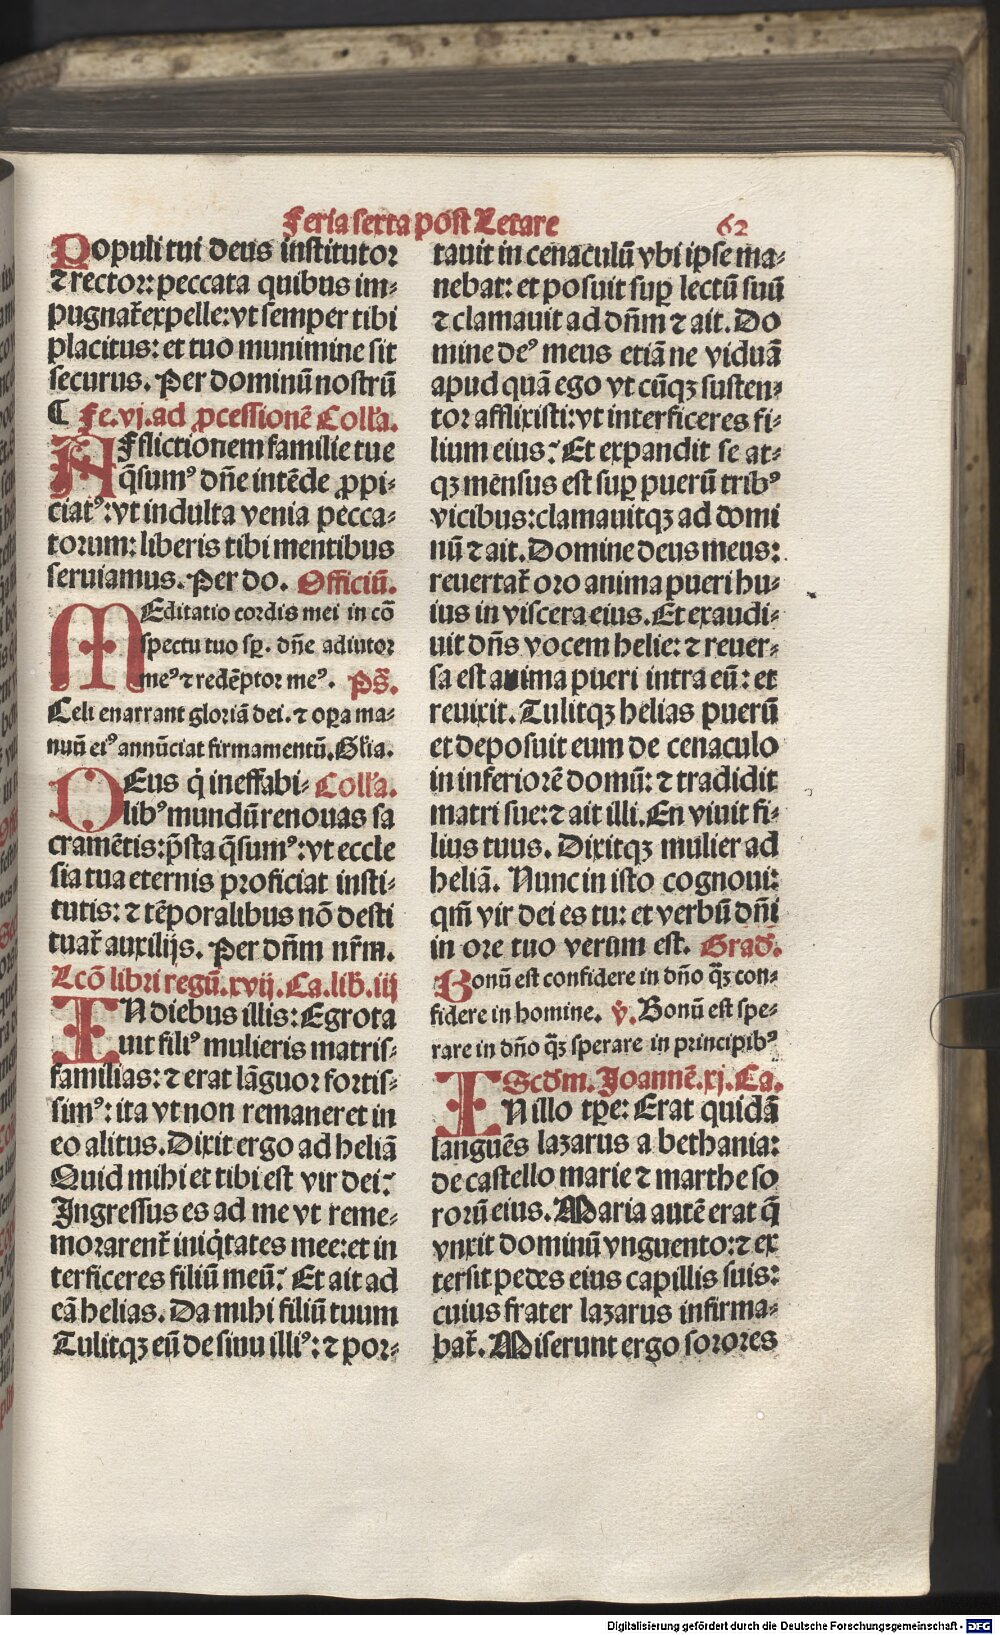 Feria sexta post Letare 62
Populi tui deus institutor
⁊ rector: peccata quibus im⸗
pugnat᷑ expelle: vt semper tibi
placitus: et tuo munimine sit
securus. Per dominū nostrū
¶ Fe. vj. ad ꝓcessionē Coll'a.
AFflictionem familie tue
q̄sumꝰ dn̄e intēde ꝓpi⸗
ciatꝰ: vt indulta venia pecca⸗
torum: liberis tibi mentibus
seruiamus. Per do. Officiū.
MEditatio cordis mei in cō
spectu tuo sꝑ. dn̄e adiutor
meꝰ ⁊ redēptor meꝰ. Ps̄.
Celi enarrant gloriā dei. ⁊ oꝑa ma⸗
nuū eiꝰ annūciat firmamentū. Gl'ia.
DEus q̇ ineffabi⸗ Coll'a.
libꝰ mundū renouas sa
cramētis: p̄sta q̄sumꝰ: vt eccle
sia tua eternis proficiat insti⸗
tutis: ⁊ tēporalibus nō desti
tuat᷑ auxilijs. Per dn̄m nr̄m.
Lcō libri regū. xvij. Ca. lib. iij
IN diebus illis: Egrota
uit filiꝰ mulieris matris⸗
familias: ⁊ erat lāguor fortis⸗
simꝰ: ita vt non remaneret in
eo alitus. Dixit ergo ad heliā
Quid mihi et tibi est vir dei?
Ingressus es ad me vt reme⸗
morarent᷑ iniq̇tates mee: et in
terficeres filiū meū? Et ait ad
eā helias. Da mihi filiū tuum
Tulitqꝫ eū de sinu illiꝰ: ⁊ por⸗
tauit in cenaculū vbi ipse ma⸗
nebat: et posuit suꝑ lectū suū
⁊ clamauit ad dn̄m ⁊ ait. Do
mine deꝰ meus etiā ne viduā
apud quā ego vt cūqꝫ susten⸗
tor afflixisti: vt interficeres fi⸗
lium eius? Et expandit se at⸗
qꝫ mensus est suꝑ puerū tribꝰ
vicibus: clamauitqꝫ ad domi
nū ⁊ ait. Domine deus meus:
reuertat᷑ oro anima pueri hu⸗
ius in viscera eius. Et exaudi⸗
uit dn̄s vocem helie: ⁊ reuer⸗
sa est anima pueri intra eū: et
reuixit. Tulitqꝫ helias puerū
et deposuit eum de cenaculo
in inferiorē domū: ⁊ tradidit
matri sue: ⁊ ait illi. En viuit fi⸗
lius tuus. Dixitqꝫ mulier ad
heliā. Nunc in isto cognoui:
qm̄ vir dei es tu: et verbū dn̄i
in ore tuo verum est. Grad'.
Bonū est confidere in dn̄o q̄ꝫ con⸗
fidere in homine. v̇. Bonū est spe⸗
rare in dn̄o q̄ꝫ sperare in principibꝰ
Scd'm. Joannē. xj. Ca.
IN illo tꝑe: Erat quidā
languēs lazarus a bethania:
de castello marie ⁊ marthe so
rorū eius. Maria autē erat q̄
vnxit dominū vnguento: ⁊ ex
tersit pedes eius capillis suis:
cuius frater lazarus infirma⸗
bat᷑. Miserunt ergo sorores
Digitalisierung gefördert durch die Deutsche Forschungsgemeinschaft - DFG